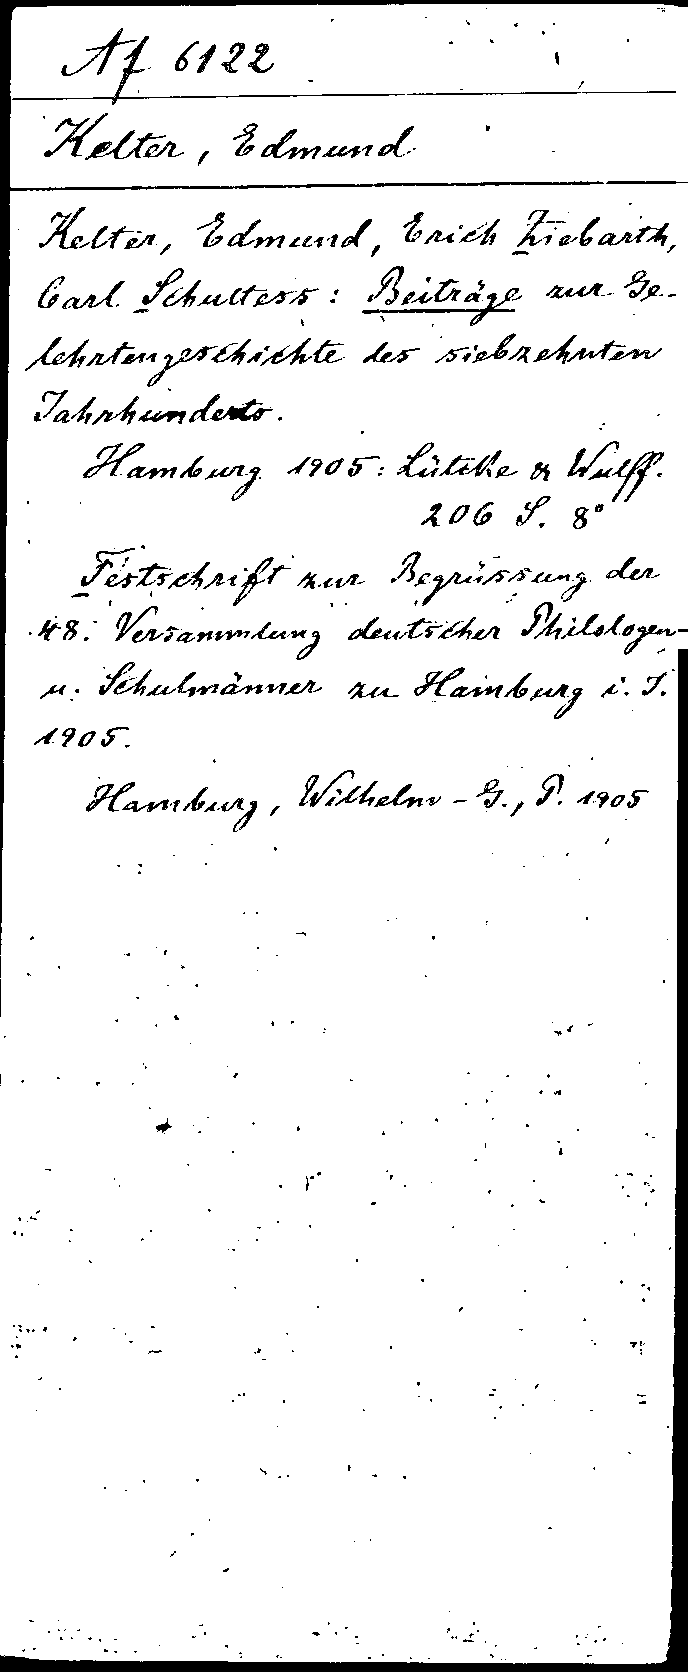 Af 6122
Kelter, Edmund
Kelter, Edmund, Erich Ziebarth,
Carl Schultess: Beiträge zur Ge-
lehrtengeschichte des siebzehnten
Jahrhunderts.
Hamburg 1905: Lütcke & Wulff.
206 S. 8°
Festschrift zur Begrüssung der
48. Versammlung deutscher Philologen-
u. Schulmänner zu Hamburg i. J.
1905.
Hamburg, Wilhelm-G., P. 1905